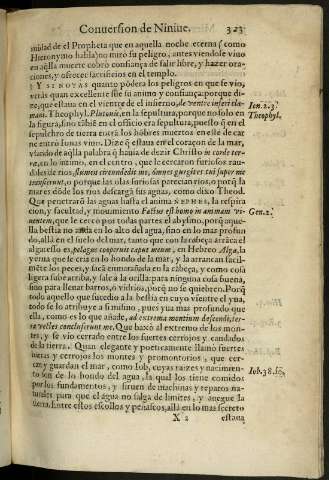 Conuersion de Niniue. 323
midad de el Propheta que en aquella noche eterna (como
Hieronymo habla) no miró su peligro, antes viendole viuo
en aq̃lla muerte cobró confiança de salir libre, y hazer ora-
ciones, y ofrecer sacrificios en el templo.
§ Y SI NOYAS quanto pódera los peligros en que se vio,
verás quan excellente fue su animo y confiança; porque di-
ze, que estaua en el vientre de el infierno, de ventre inferi cla-
maui. Theophyl. Plutonis, en la sepultura, porque no solo en
la figura, sino tãbiẽ en el officio era sepultura, puesto q̃ en el
sepulchro de tierra entrã los hõbres muertos en este de car
ne entró Ionas viuo. Dize q̃ estaua en el coraçon de la mar,
vsando de aq̃lla palabra q̃ hauia de dezir Christo in corde ter-
ræ, en lo intimo, en el centro, que le cercaron furiosos rau-
dales de rios, flumen circundedit me, omnes gurgites tui super me
transierunt, o porque las olas furiosas parecian rios, o porq̃ la
mar es dõde los rios descargã sus aguas, como dixo Theod.
Que penetrarõ las aguas hasta el anima NEPHES, la respira
cion, y facultad, y mouimiento Factus est homo in animam vi-
uentem, que le cerco por todas partes el abysmo, porq̃ aque-
lla bestia no nadaua en lo alto del agua, sino en lo mas profun
do, allà en el suelo del mar, tanto que con la cabeça arrãca el
algazo sso es, pelagus cooperuit caput meum, en Hebreo Alga, la
yerua que se cria en lo hondo de la mar, y la arrancan facil-
mẽte los peces, y sacã enmarañada en la cabeça, y como cosa
ligera sube arriba, y sale a la orilla: para ninguna cosa buena,
sino para llenar barros, o vidrios, porq̃ no se quiebren. Porq̃
todo aquello que sucedio a la bestia en cuyo vientre el yua,
todo se lo atribuye a si mismo, pues yua mas profundo que
ella, como es lo que añade, ad extrema montium descendi, ter-
ræ vectes concluserunt me. Que baxò al extremo de los mon-
tes, y se vio cerrado entre los fuertes cerrojos y candados
de la tierra. Quan elegante y poeticamente llamò fuertes
barras y cerrojos los montes y promontorios, que cer-
can y guardan el mar, como Iob, cuyas raizes y nacimien-
to son de lo hondo del agua, la qual los tiene comidos
por los fundamentos, y siruen de machinas y reparos na-
turales para que el agua no salga de limites, y anegue la
tierra. Entre estos escollos y peñascos, allà en lo mas secreto
X 2 estaua
Ion. 2. 3.
Theophyl.
Gen. 2.
Iob. 38. 16.